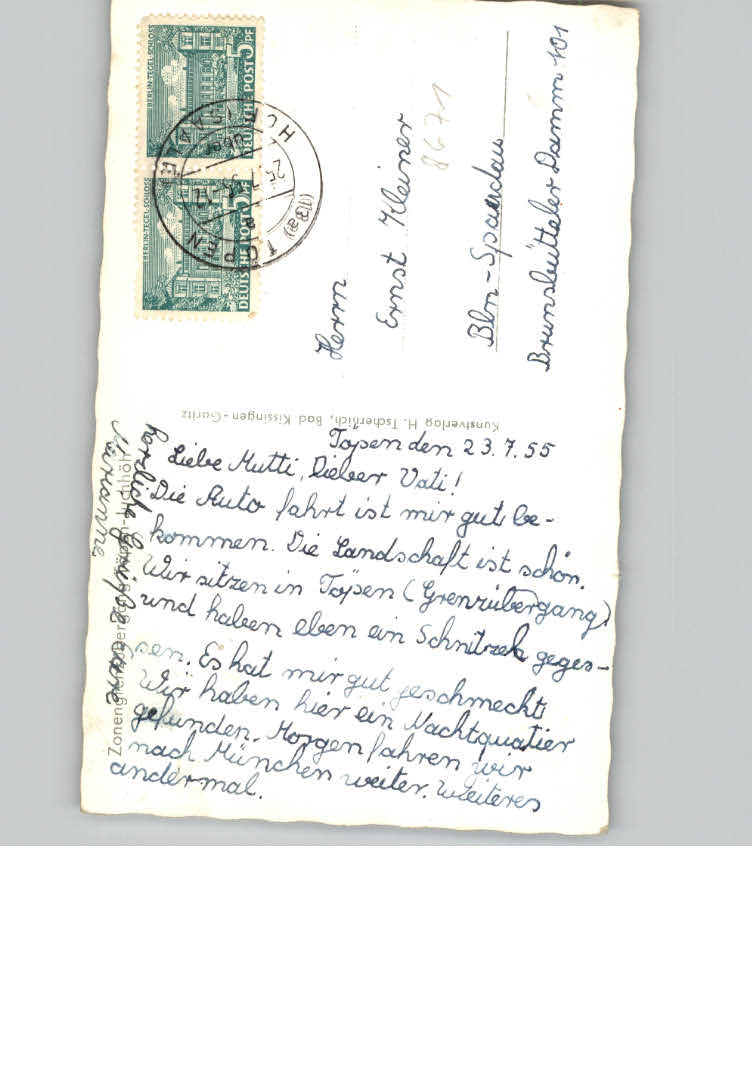 Töpen den 23.7.55
Liebe Mutti, Lieber Vati!
Die Auto fahrt ist mir gut be-
kommen. Die Landschaft ist schön.
Wir sitzen in Töpen (Grenzübergang)
und haben eben ein Schnitzel geges-
sen. Es hat mir gut geschmeckt,
Wir haben hier ein Nachtquatier
gefunden. Morgen fahren wir
nach München weiter. Weiteres
andermal.
herzliche Grüße eure
Marianne
Zonengrenzübergang Töpen-Juchhöh
Kunstverlag H. Tscherlich, Bad Kissingen-Garitz
Herrn
Ernst Kleiner
Bln-Spandau
Brunsbütteler Damm 101
8671
BERLIN-TEGEL-SCHLOSS
DEUTSCHE POST 5 PF
BERLIN-TEGEL-SCHLOSS
DEUTSCHE POST 5 PF
(13a) TÖPEN
über
HOF (SAALE)